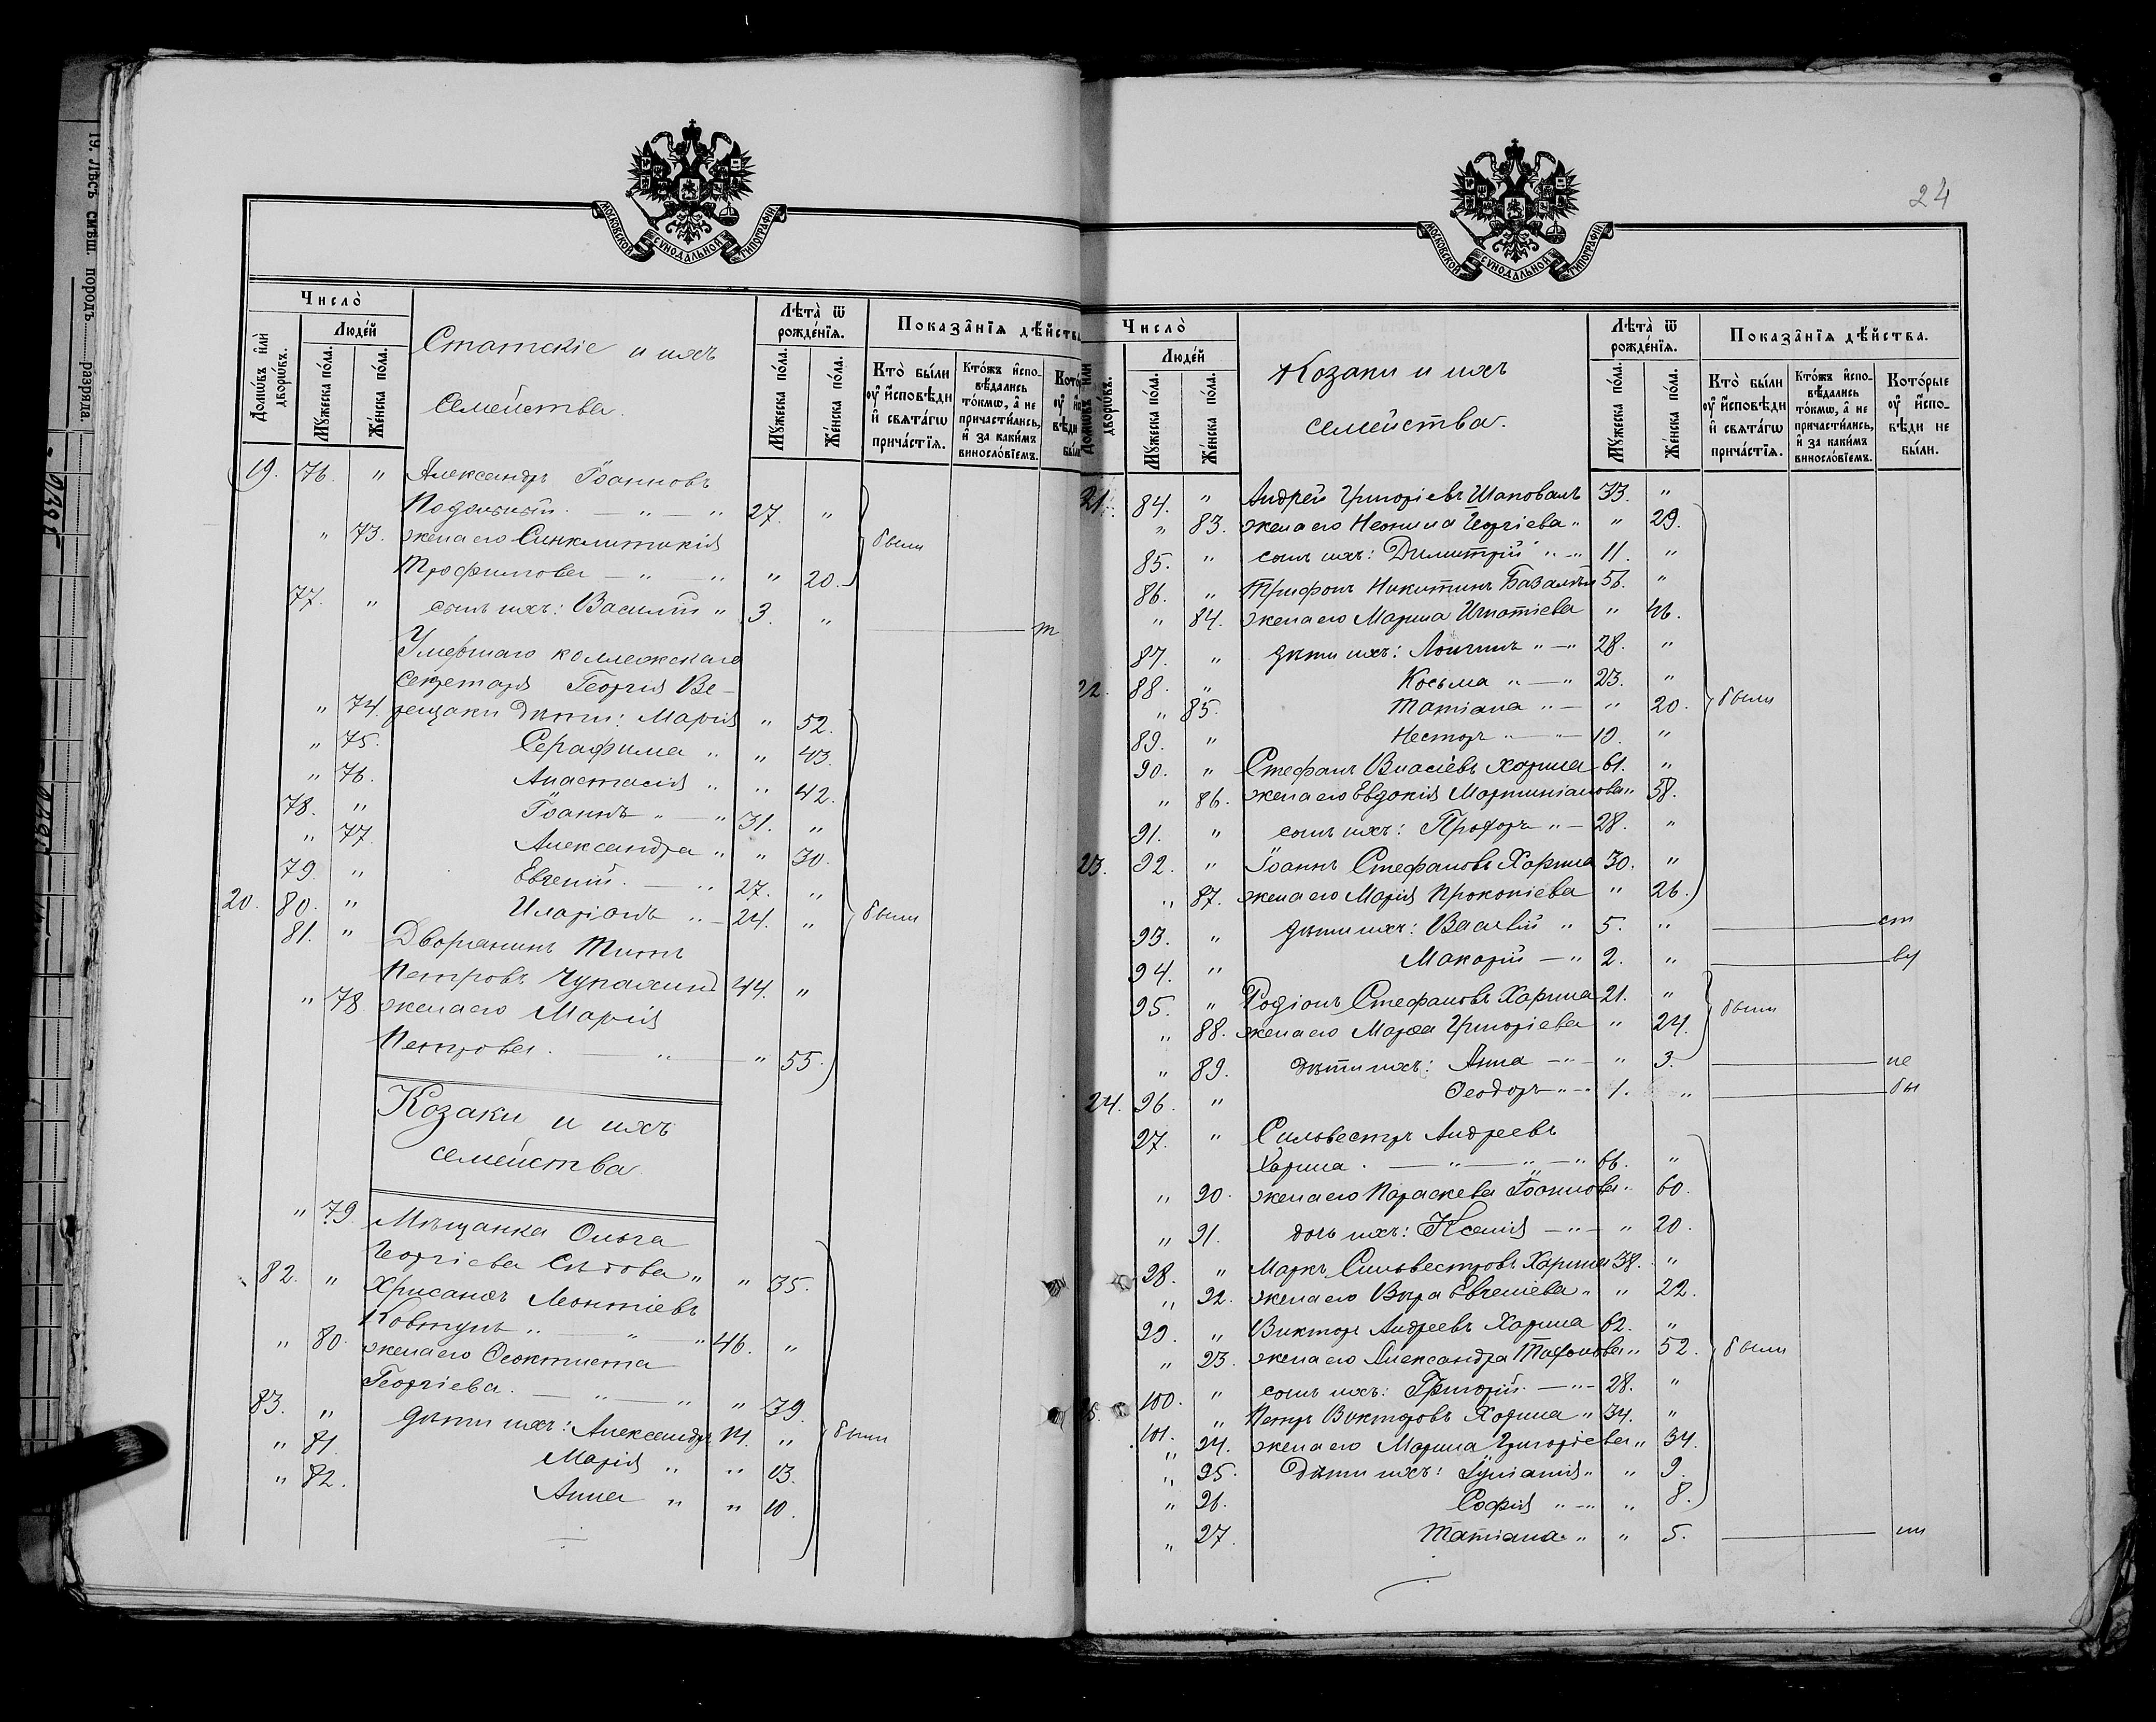 19. ЛѢСЪ СМѢШ. породъ разряда.
МОСКОВСКОЙ СѴНОДАЛЬНОЙ ТИПОГРАФІИ.
Число̀
Людей
Домѡвъ и҆лѝ дворѡвъ.
Мꙋжеска по́ла.
Же́нска по́ла.
Статскіе и ихъ
семейства.
Лѣта̀ ѿ рожде́нїѧ.
Мꙋжеска по́ла.
Же́нска по́ла.
Показа̑нїѧ дѣ́йства
Кто̀ бы́ли оу҆ и҆сповѣди и҆ свѧта́гѡ прича́стїѧ.
Кто́жъ и҆спо-вѣ́дались то́кмѡ, а҆ не причасти́лись, и҆ за каки́мъ винослѻ́вїемъ.
19. 76. " Александръ Іоанновъ
Подольный. — " — " 27. "
" 73. жена его Синклитикія
Трофимова — " — " " 20. были
77. " сынъ ихъ: Василій " 3. " — т
Умершаго коллежскаго
секретаря Георгія Ве-
" 74. рещаки дѣти: Марія " 52.
" 75. Серафима " " 43.
" 76. Анастасія " " 42.
78. " Іоаннъ " — " 31. "
" 77. Александра " " 30.
79. " Евгеній. — " 27. "
20. 80. " Иларіонъ " — 24. " были
81. " Дворянинъ Титъ
Петровъ 44. "
" 78. жена его Марія
Петрова. — " — " 55.
Козаки и ихъ
семейства
" 79. Мѣщанка Ольга
Георгіева " " 35.
82. " Хрисанѳъ Леонтіевъ
Ковтунъ " " " 46. "
" 80. жена его Ѳеоктиста
Георгіева. — " — " " 39.
83. " дѣти ихъ: Александръ 14. " были
" 81. Марія " " 13.
" 82. Анна " " 10.
24
МОСКОВСКОЙ СѴНОДАЛЬНОЙ ТИПОГРАФІИ.
Число̀
Людей
дворѡвъ.
Мꙋжеска по́ла.
Же́нска по́ла.
Козаки и ихъ
семейства.
Лѣта̀ ѿ рожде́нїѧ.
Мꙋжеска по́ла.
Же́нска по́ла.
Показа̑нїѧ дѣ́йства.
Кто̀ бы́ли оу҆ и҆сповѣди и҆ свѧта́гѡ прича́стїѧ.
Кто́жъ и҆спо-вѣ́дались то́кмѡ, а҆ не причасти́лись, и҆ за каки́мъ винослѻ́вїемъ.
Кото́рые оу҆ и҆спо-вѣди не бы́ли.
21. 84. " Андрей Григоріевъ Шаповалъ 33. "
" 83. жена его Неонила Георгіева " " 29.
85. " сынъ ихъ: Димитрій " " 11. "
86. " Трифонъ Никитинъ 56. "
" 84. жена его Марина Игнатіева " 46.
87. " дѣти ихъ: Лонгинъ " — " 28. "
22. 88. " Косьма " — " 23. "
" 85. Татіана " — " 20. были
89. " Несторъ " — " — 19. "
90. " Стефанъ Власіевъ Харина 61. "
" 86. жена его Евдокія Мартиніанова " 58.
91. " сынъ ихъ: Прохоръ " — 28. "
23. 92. " Іоаннъ Стефановъ Харина 30. "
" 87. жена его Марія Прокопіева " 26.
93. " дѣти ихъ: Василій " 5. " — ст
94. " Макарій — " 2. " — ву
95. " Родіонъ Стефановъ Харина 21. " были
" 88. жена его Марѳа Григоріева " 24.
" 89. дѣти ихъ: Анна — " — " 3. — не
24. 96. " Ѳеодоръ " — " 1. " — бы
97. " Сильвестръ Андреевъ
Харина. — " — " — " 66. "
" 90. жена его Параскева Іоаннова " 60.
" 91. дочь ихъ: Ксенія — " — " 20.
98. " Маркъ Сильвестровъ Харина 38. "
" 92. жена его Вѣра Евгеніева " " 22.
99. " Викторъ Андреевъ Харина 62. "
" 93. жена его Александра " 52. были
100. " сынъ ихъ: Григорій. — " — 28. "
101. " Петръ Викторовъ Харина " 34. "
" 94. жена его Марина Григоріева " 34.
" 95. Дѣти ихъ: Іуліанія " " 9.
" 96. Софія " — " " 8.
" 97. Татіана " " 5. — ли